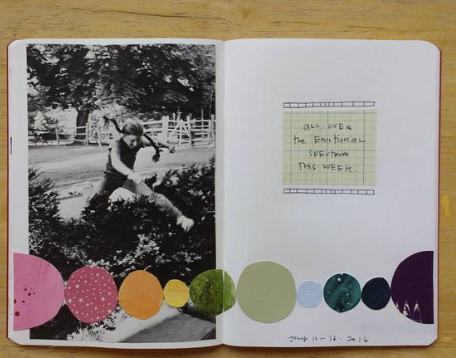 all over
the Emotional
spectrum
THIS WEEK.
July 10-16. 2016